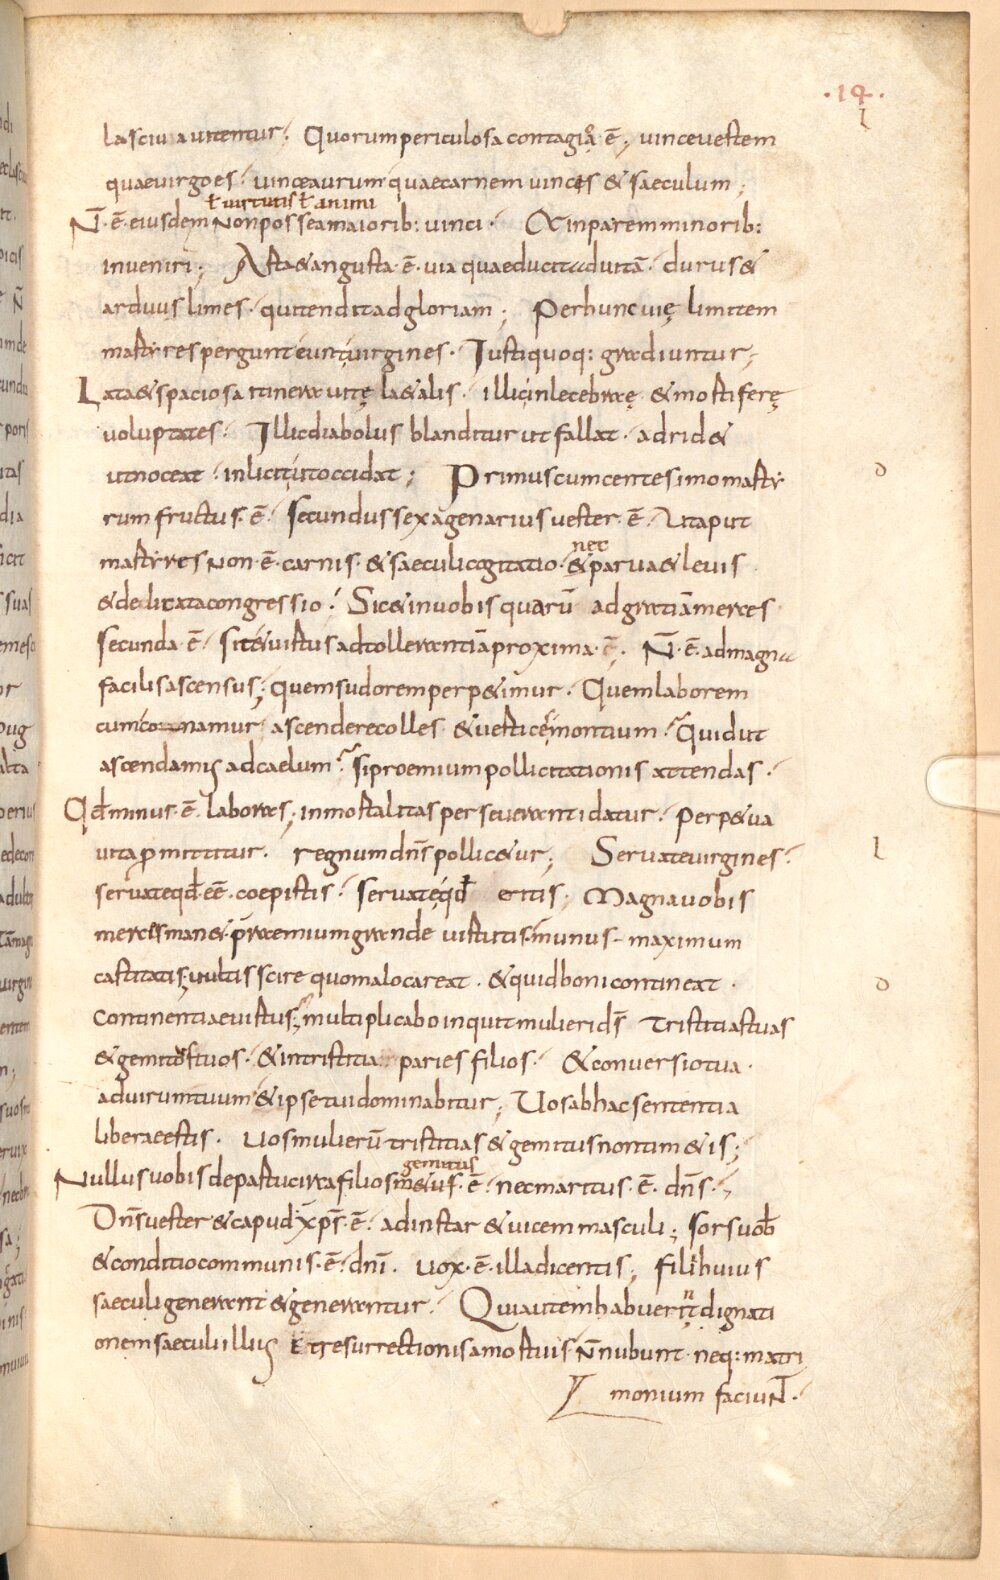 ·14·
lasciuia utentur. Quorum periculosa contagia ē; uince uestem
quae uirgo es. uince aurum quae carnem uinces & saeculum;
ł uirtutis ł animi
N̄·ē· eiusdem non posse a maiorib: uinci· & inparem minorib:
inueniri; Arta & angusta·ē· uia quae ducit ad uitā· durus &
arduus limes· qui tendit ad gloriam; Per hunc uię limitem
martyres pergunt eunt uirgines· Iusti quoq: gradiuntur;
Lata & spaciosa itinera uitę la&alis· illic inlecebrę & mortiferę
uoluptates. Illic diabolus blanditur ut fallat· adrid&
ut noceat· inlicit ut occidat; Primus cum centesimo marty
rum fructus·ē· secundus sexagenarius uester·ē· Ut aput
martyres non·ē· carnis·& saeculi cogitatio·
nec
& parua & leuis
& delicata congressio. Sic & in uobis quarū ad gratiā merces
secunda·ē· sit & uirtus ad tollerantiā proxima·ē· N̄·ē· ad magna
facilis ascensus; quem sudorem perp&imur· Quem laborem
cum conamur ascendere colles & uertices montium. Quid ut
ascendamus ad caelum. si proemium pollicitationis attendas·
Qđ minus·ē· laboras; inmortalitas perseueranti datur. perp&ua
uita ꝓmittitur· regnum dn̄s pollic&ur; Seruate uirgines.
seruate qđ ēē· coepistis. seruate qđ eritis; Magna uobis
merces man& p̄raemium grande uirtutis. munus maximum
castitatis; uultis scire quo malo careat· & quid boni contineat·
Continentiae uirtus; multiplicabo inquit mulieri dn̄s tristitias tuas
& gemitus tuos· & in tristitia paries filios· & conuersio tua·
ad uirum tuum & ipse tui dominabitur; Uos ab hac sententia
liberae estis· uos mulierū tristitias & gemitus non tim&is;
gemitus
Nullus uobis de partu circa filios m&us·ē· nec maritus·ē· dn̄s·
Dn̄s uester & capud xp̄s·ē· ad instar & uicem masculi; sors uob̄
& conditio communis·ē· dn̄i· uox·ē· illa dicentis; filii huius
saeculi generant & generantur. Qui autem habuerint dignati
onem saeculi illius & resurrectionis a mortuis· n̄ nubunt· neq: matri
monium faciuNT·